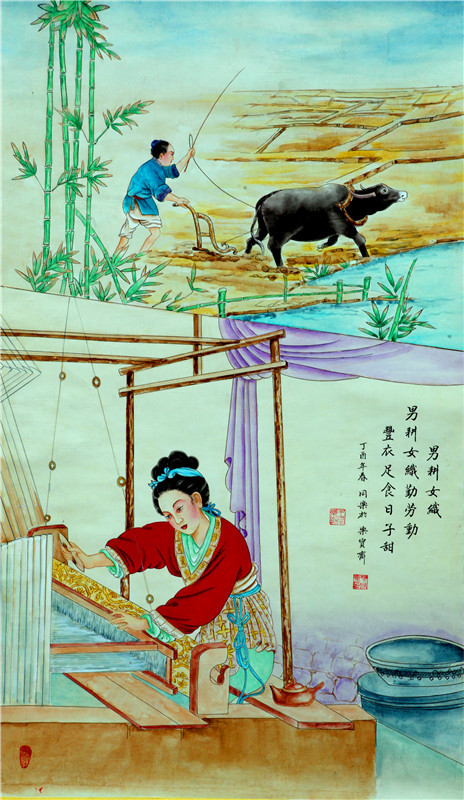 男耕女織
男耕女織勤勞動
豐衣足食日子甜
丁酉年春同樂於樂寶齋